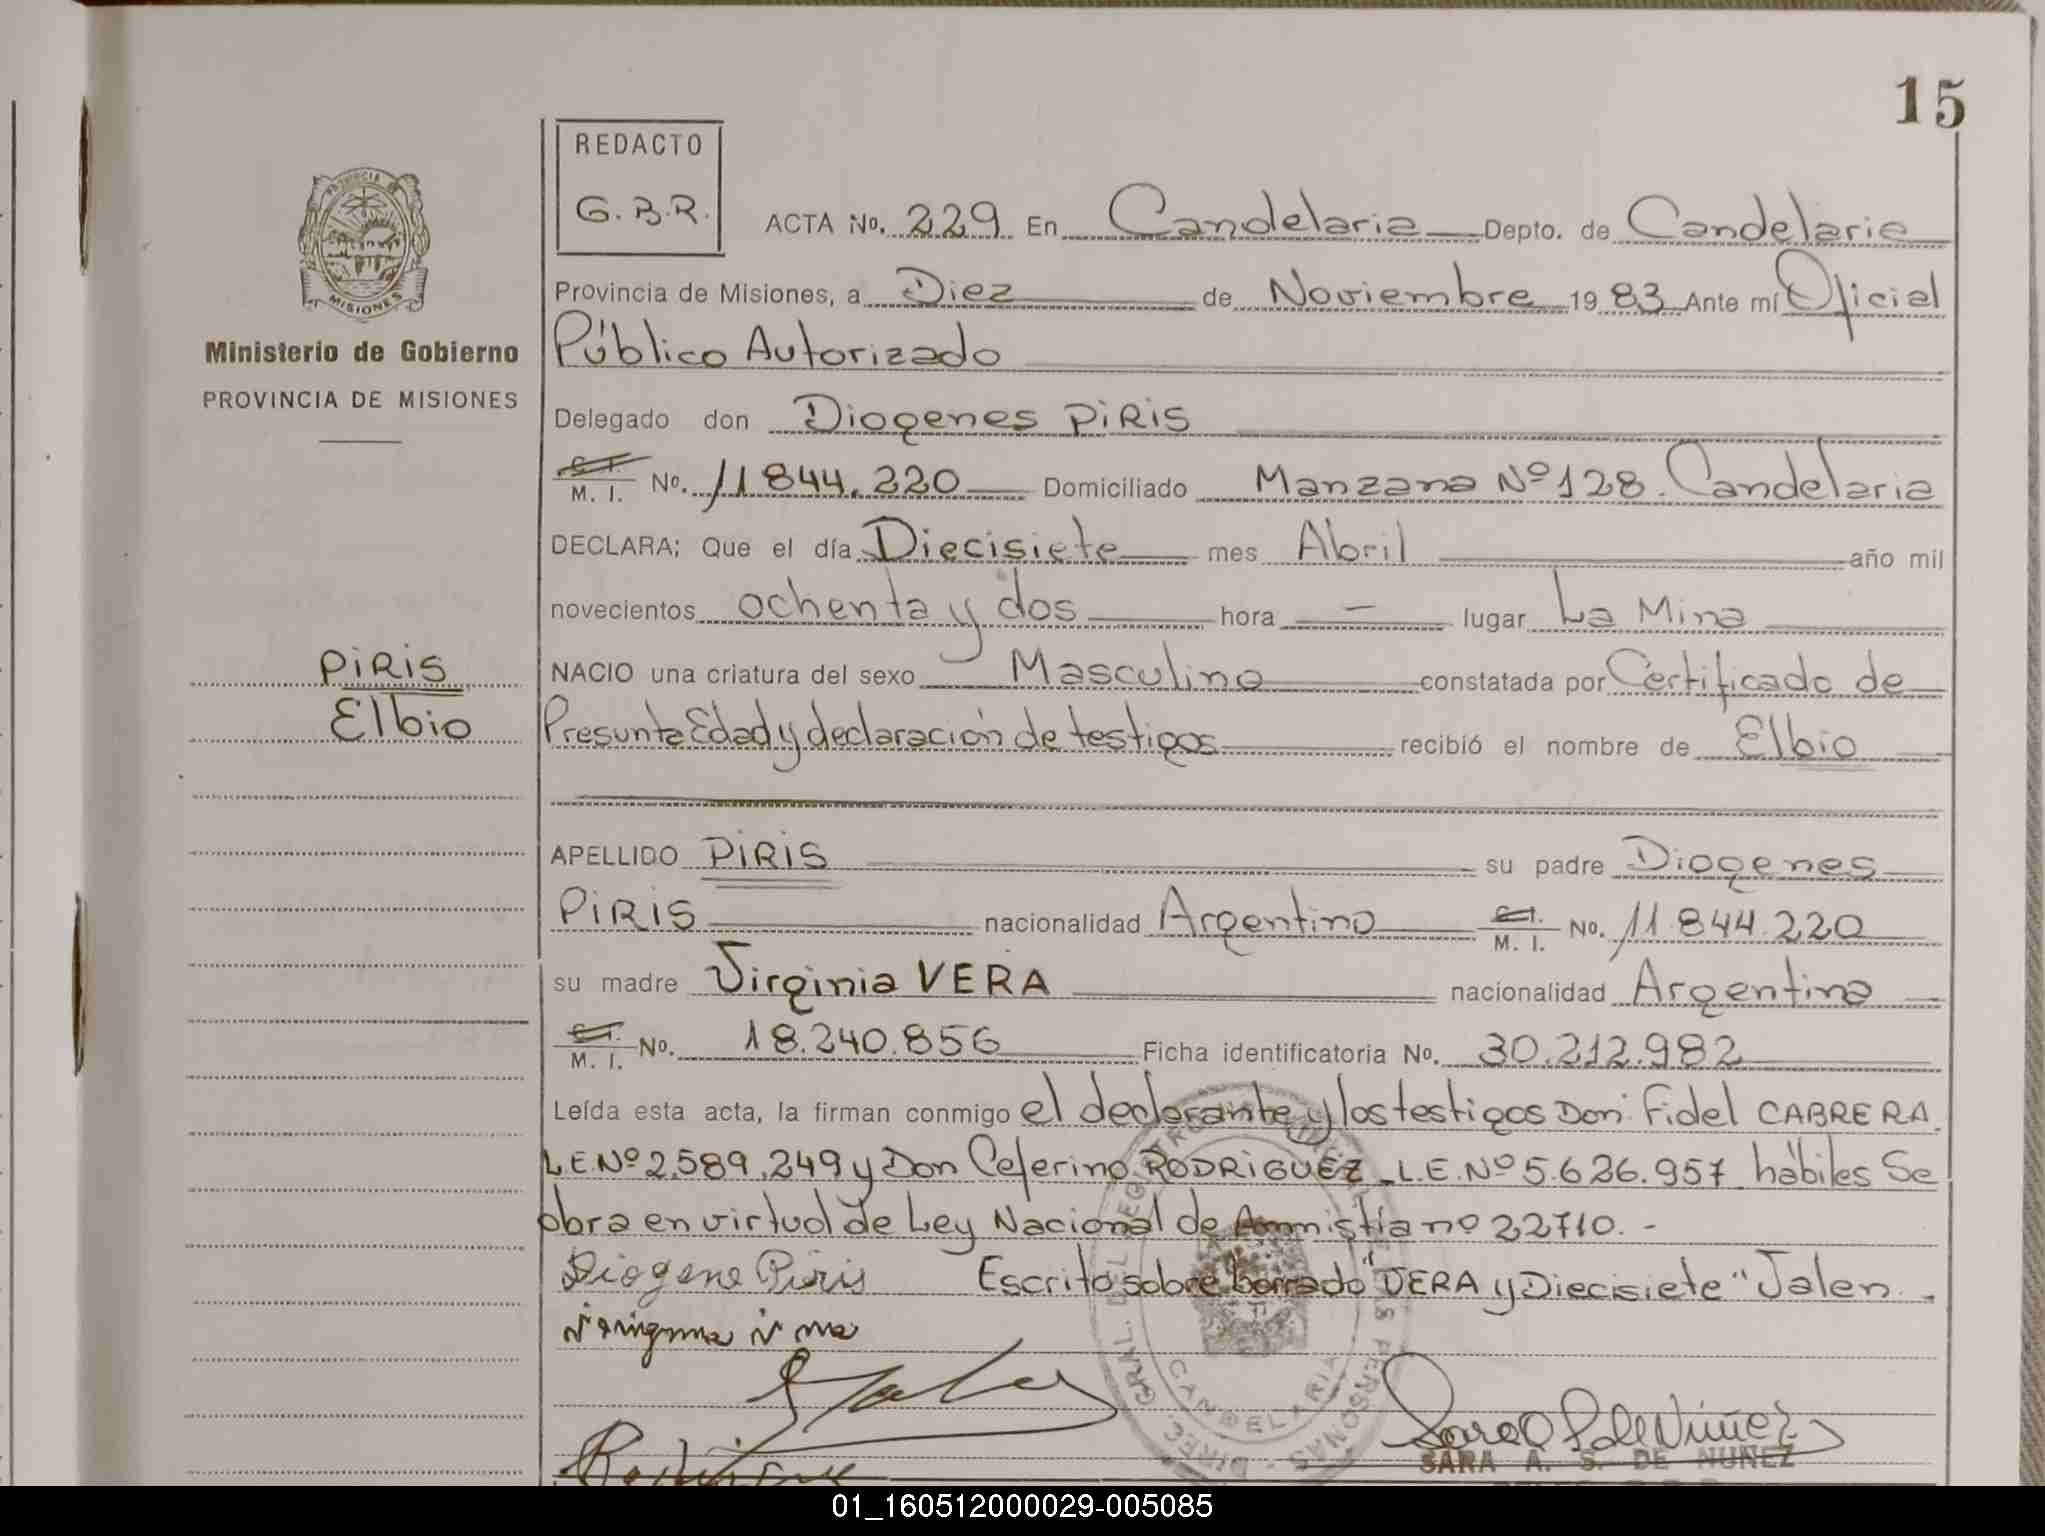 15
REDACTO
G.B.R.
ACTA No. 229 En Candelaria Depto. de Candelaria
Provincia de Misiones, a Diez de Noviembre 1983 Ante mí Oficial
Ministerio de Gobierno
PROVINCIA DE MISIONES
Público Autorizado
Delegado don Diogenes PIRIS
C. I.
M. I. No. 11844.220 Domiciliado Manzana Nº 128. Candelaria
DECLARA: Que el día Diecisiete mes Abril año mil
novecientos ochenta y dos hora — lugar La Mina
PIRIS
Elbio
NACIO una criatura del sexo Masculino constatada por Certificado de
Presunta Edad y declaración de testigos recibió el nombre de Elbio
APELLIDO PIRIS su padre Diogenes
PIRIS nacionalidad Argentino C. I. M. I. No. 11.844.220
su madre Virginia VERA nacionalidad Argentina
C. I.
M. I. No. 18.240.856 Ficha identificatoria No. 30.212.982
Leída esta acta, la firman conmigo el declarante y los testigos Don Fidel CABRERA
L.E.Nº 2.589.249 y Don Ceferino RODRIGUEZ L.E.Nº 5.626.957 hábiles Se
obra en virtud de Ley Nacional de Ammistía nº 22710.-
Diogene Piris Escrito sobre borrado "VERA y Diecisiete" Valen.
SARA A. S. DE NUÑEZ
CANDELARIA
01_160512000029-005085